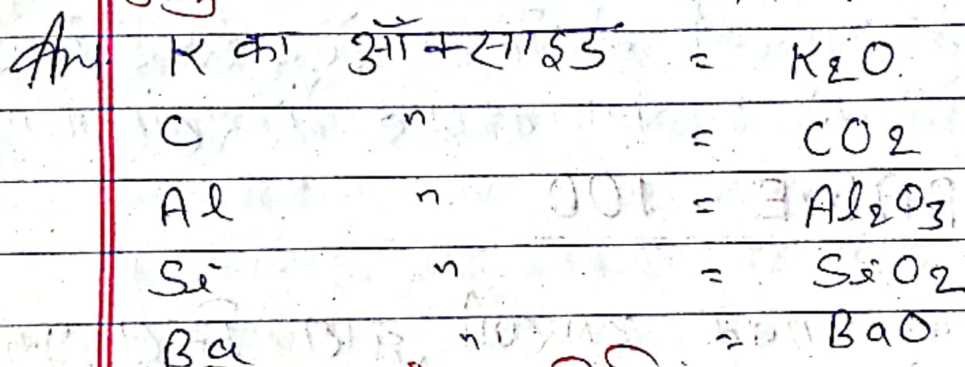 Ans. K का ऑक्साइड = K2O.
C " = CO2
Al " = Al2O3
Si " = SiO2
Ba " = BaO.